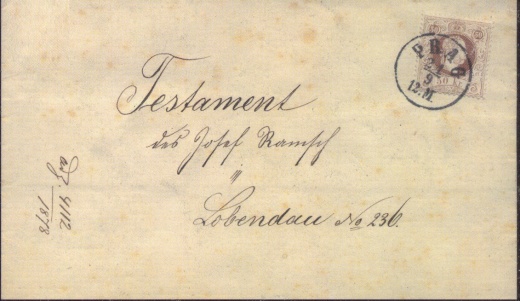 PRAG
9
12.M.
50 Kr.
Testament
des Josef Ramsch
"
Lobendau No 236.
4112
1878